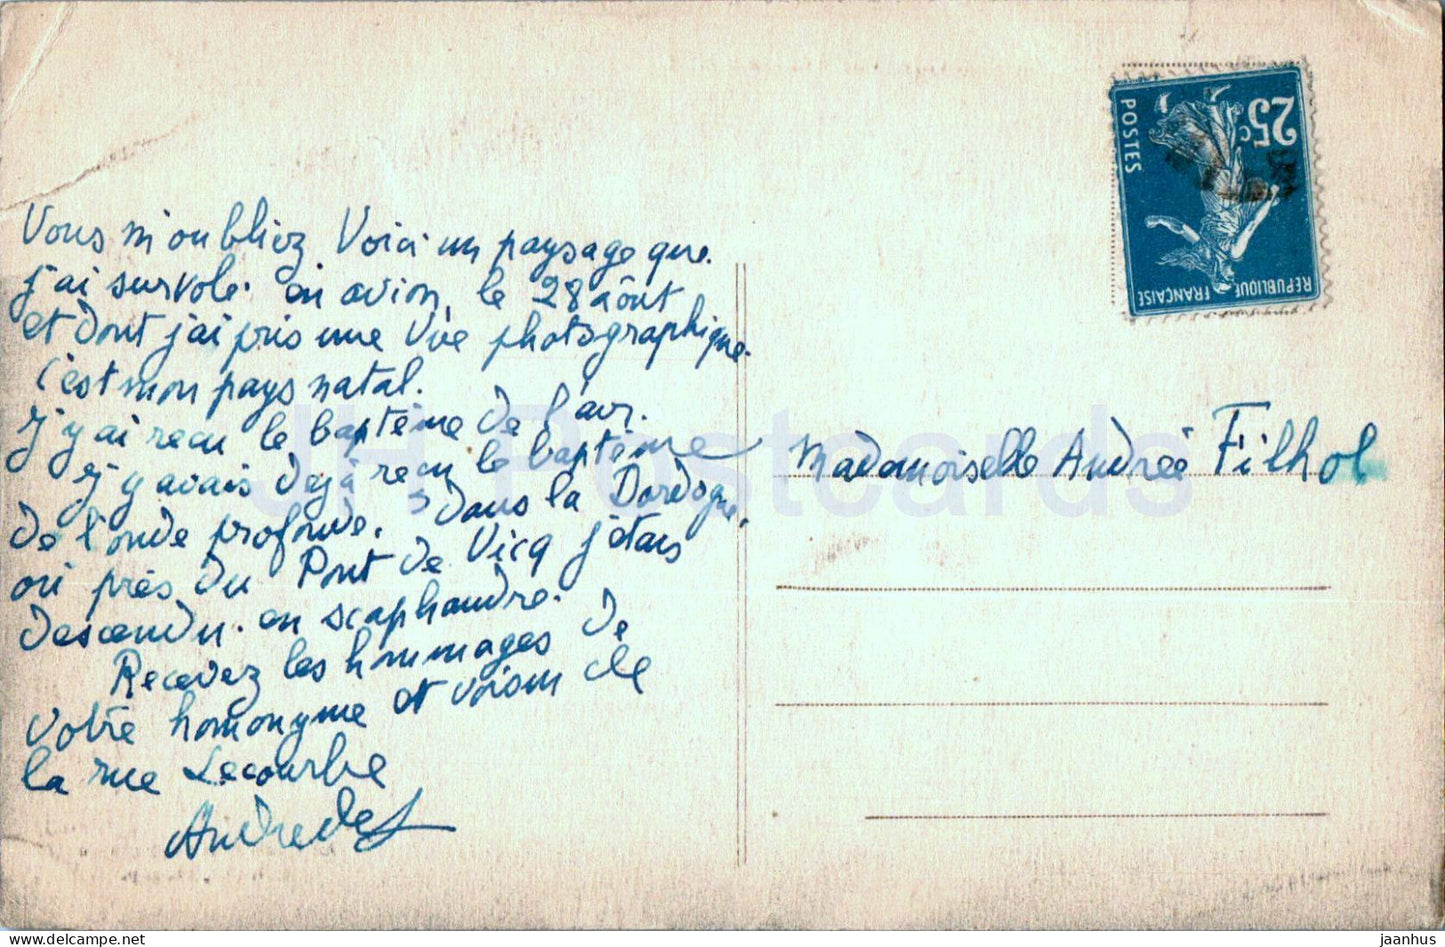 Vous m'oubliez Voici un paysage que
j'ai survolé en avion, le 28 août
et dont j'ai pris une vue photographique.
C'est mon pays natal.
J'y ai recu le baptême de l'air.
J'y avais dejà recu le baptême
de l'onde profonde. Dans la Dordogne,
où près du Pont de Vicq j'étais
descendu en scaphandre.
Recevez les hommages de
votre homonyme et voisin de
la rue Lecourbe
Mademoiselle Andrée Filhol
25c
POSTES
REPUBLIQUE FRANÇAISE
JH Postcards
jaanhus | delcampe.net